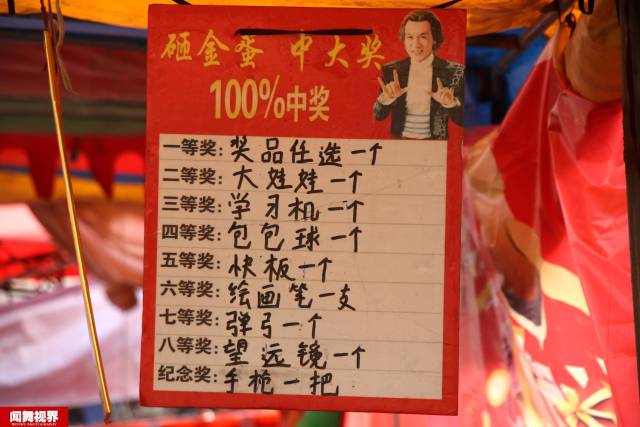 砸金蛋 中大奖
100%中奖
一等奖：奖品任选一个
二等奖：大娃娃一个
三等奖：学习机一个
四等奖：包包球一个
五等奖：快板一个
六等奖：绘画笔一支
七等奖：弹弓一个
八等奖：望远镜一个
纪念奖：手枪一把
闻舞视界